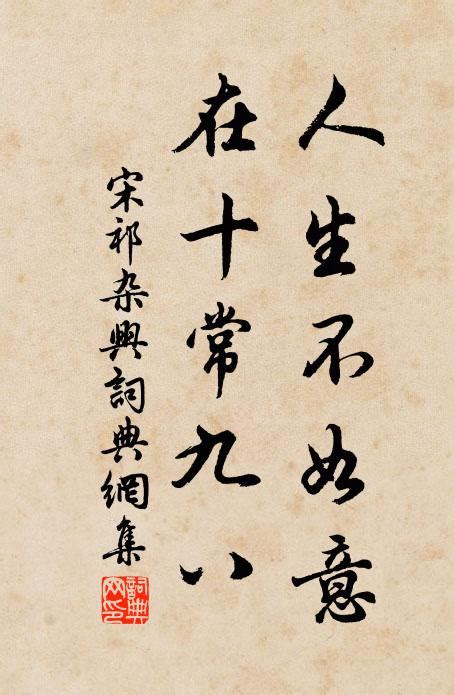 人生不如意
在十常九八
宋祁杂興詞典網集
詞典網印